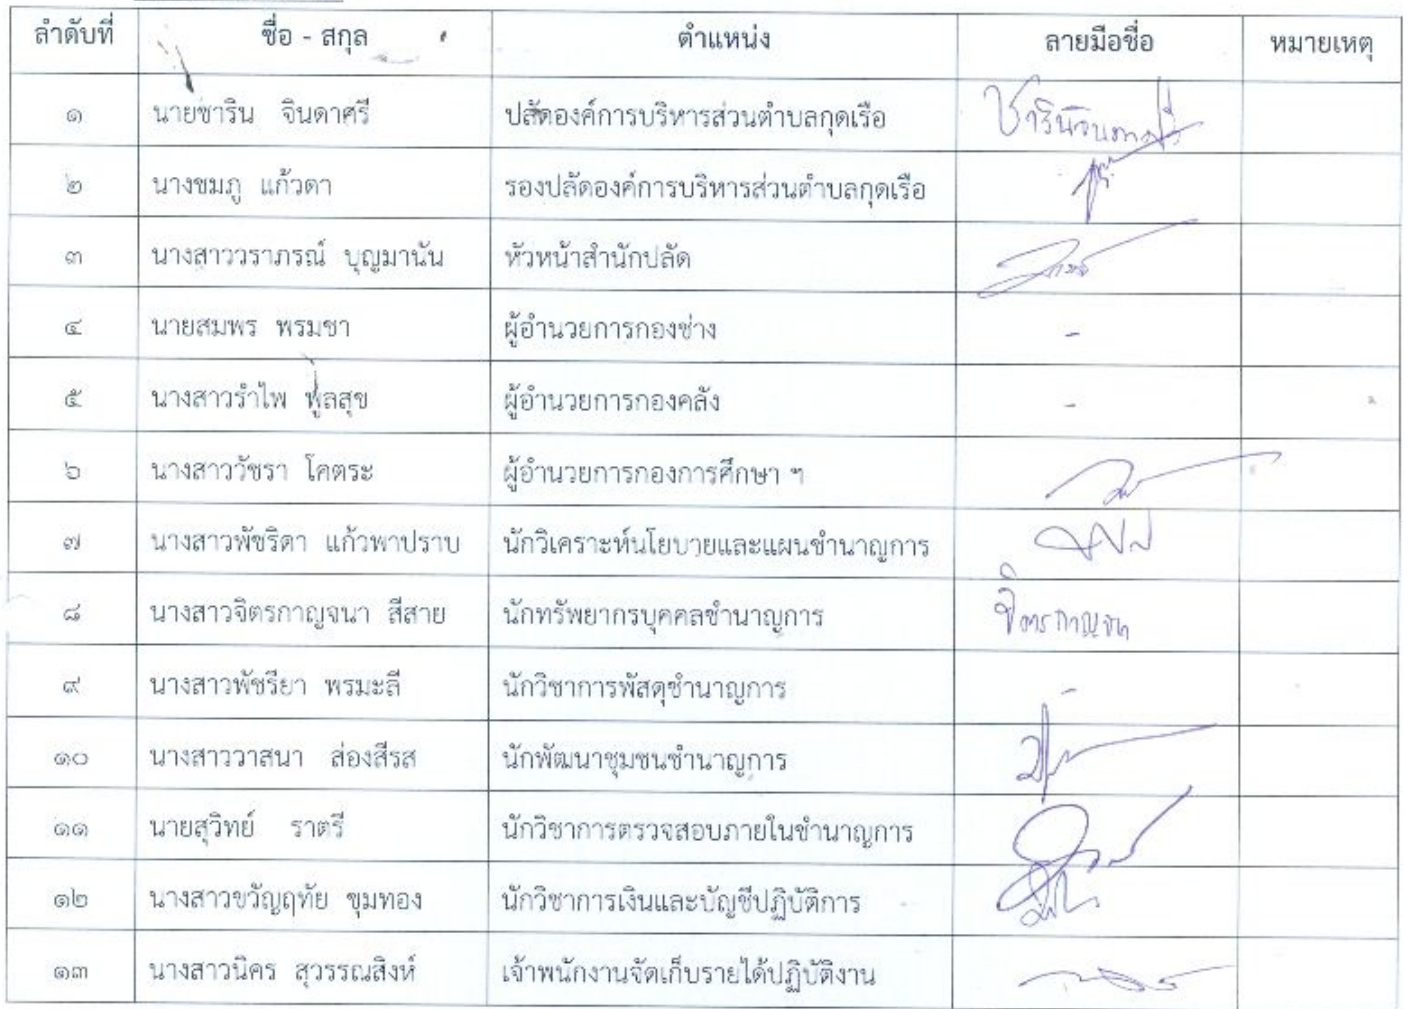 ลำดับที่ ชื่อ - สกุล ตำแหน่ง ลายมือชื่อ หมายเหตุ
๑ นายชาริน จินดาศรี ปลัดองค์การบริหารส่วนตำบลกุดเรือ
๒ นางชมภู แก้วดา รองปลัดองค์การบริหารส่วนตำบลกุดเรือ
๓ นางสาววราภรณ์ บุญมานัน หัวหน้าสำนักปลัด
๔ นายสมพร พรมชา ผู้อำนวยการกองช่าง -
๕ นางสาวรำไพ พูลสุข ผู้อำนวยการกองคลัง -
๖ นางสาววัชรา โคตระ ผู้อำนวยการกองการศึกษา ฯ
๗ นางสาวพัชริดา แก้วพาปราบ นักวิเคราะห์นโยบายและแผนชำนาญการ
๘ นางสาวจิตรกาญจนา สีสาย นักทรัพยากรบุคคลชำนาญการ
๙ นางสาวพัชรียา พรมะลี นักวิชาการพัสดุชำนาญการ -
๑๐ นางสาววาสนา ส่องสีรส นักพัฒนาชุมชนชำนาญการ
๑๑ นายสุวิทย์ ราตรี นักวิชาการตรวจสอบภายในชำนาญการ
๑๒ นางสาวขวัญฤทัย ขุมทอง นักวิชาการเงินและบัญชีปฏิบัติการ
๑๓ นางสาวนิคร สุวรรณสิงห์ เจ้าพนักงานจัดเก็บรายได้ปฏิบัติงาน